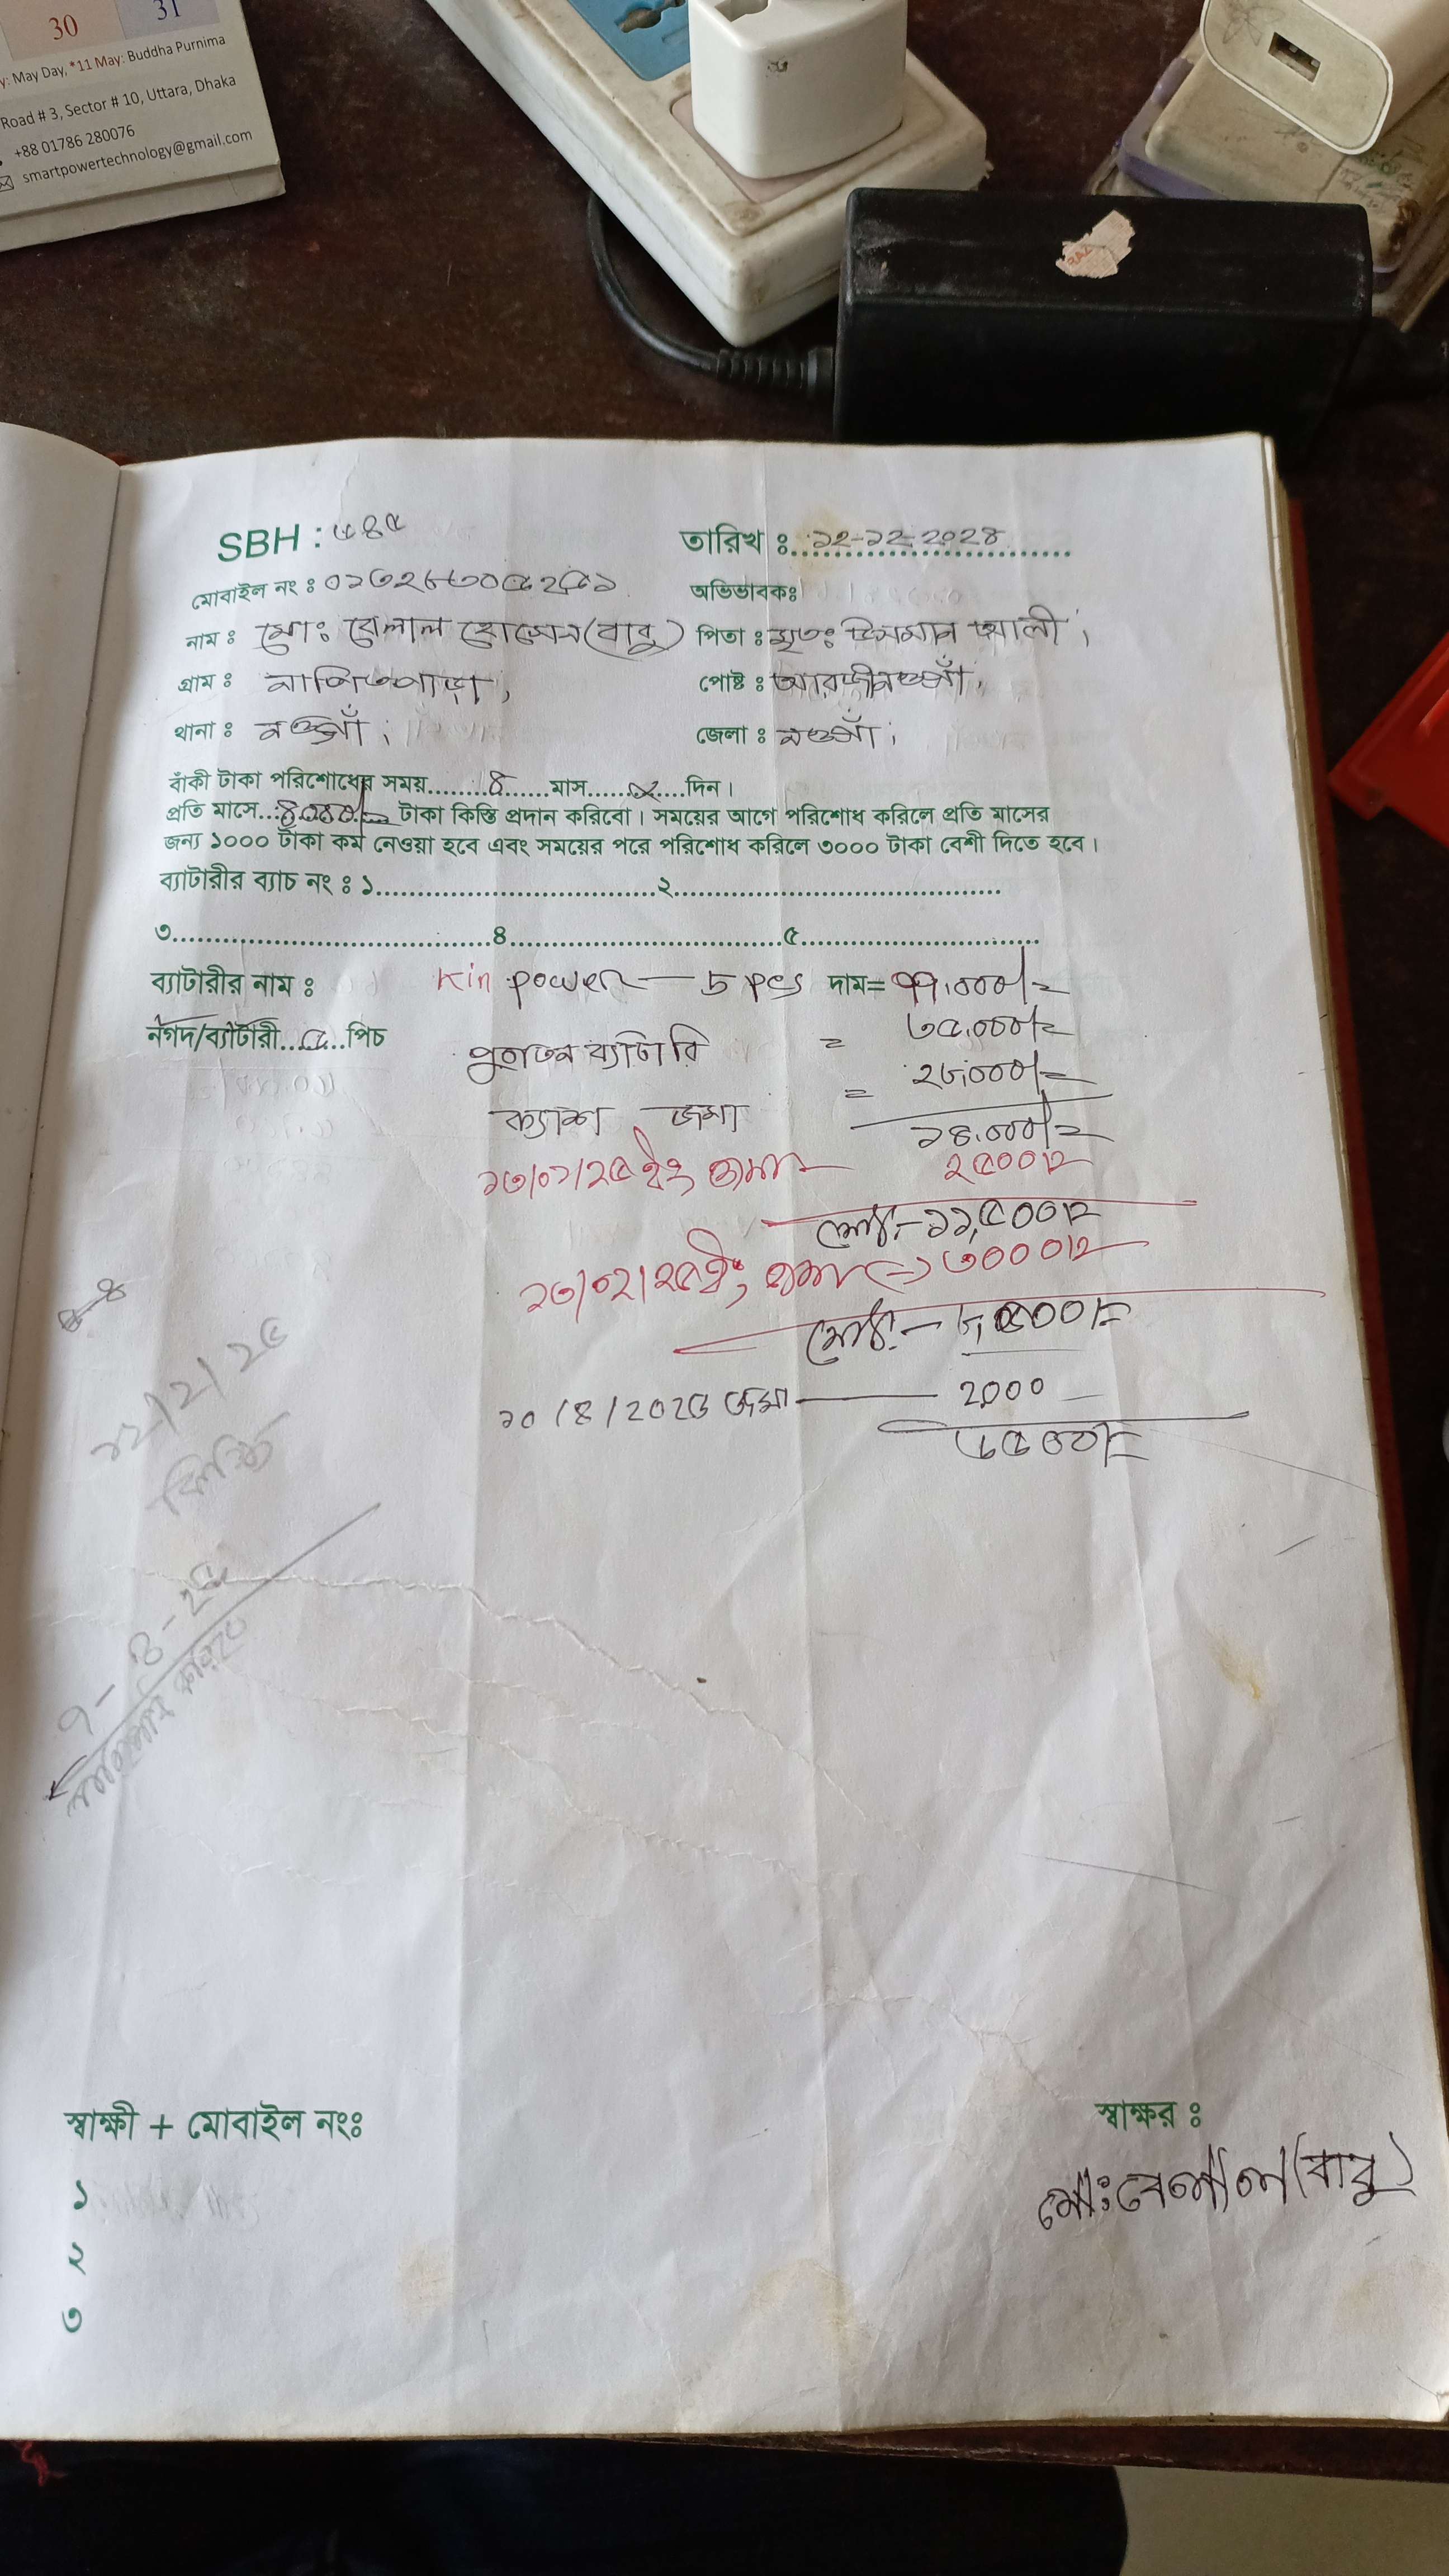 30 31
y: May Day, *11 May: Buddha Purnima
Road # 3, Sector # 10, Uttara, Dhaka
+88 01786 280076
smartpowertechnology@gmail.com
SBH : ৬৪৫
তারিখ ঃ ১২-১২-২০২৪
মোবাইল নং ঃ
অভিভাবকঃ
নাম ঃ মোঃ বেলাল হোসেন (বাবু)
পিতা ঃ মৃতঃ আলী,
গ্রাম ঃ নাপিতপাড়া,
পোষ্ট ঃ আরজীনওগাঁ,
থানা ঃ নওগাঁ,
জেলা ঃ নওগাঁ,
বাঁকী টাকা পরিশোধের সময়........৪.......মাস..............দিন।
প্রতি মাসে...৪০০০/=..টাকা কিস্তি প্রদান করিবো। সময়ের আগে পরিশোধ করিলে প্রতি মাসের
জন্য ১০০০ টাকা কম নেওয়া হবে এবং সময়ের পরে পরিশোধ করিলে ৩০০০ টাকা বেশী দিতে হবে।
ব্যাটারীর ব্যাচ নং ঃ ১..................................২........................................
৩......................................৪.................................৫.............................
ব্যাটারীর নাম ঃ Kin power — 5 pcs দাম= ৭৭,০০০/=
নগদ/ব্যাটারী...৫...পিচ
পুরাতন ব্যাটারি = ৩৫,০০০/=
ক্যাশ জমা = ২৮,০০০/=
১৪,০০০/=
১৩/০১/২৫ ইং জমা — ২৫০০/=
মোট - ১১,৫০০/=
১৩/০২/২৫ ইং, জমা (-) ৩০০০/=
মোট - ৮,৫০০/=
১০/৪/২০২৫ জমা — ২০০০
৬৫০০/=
১২/২/২৫
কিস্তি
৭-৪-২৫
স্বাক্ষী + মোবাইল নংঃ
স্বাক্ষর ঃ
মোঃ বেলাল (বাবু)
১
২
৩